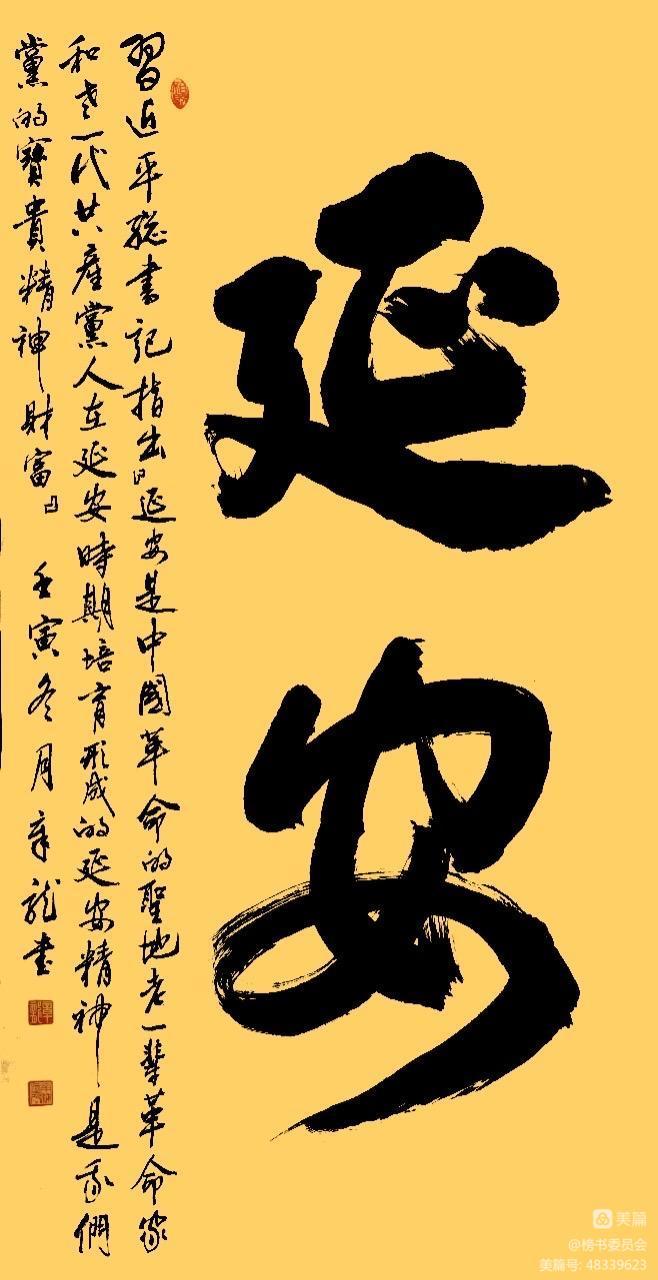 延安
習近平總書記指出『延安是中國革命的聖地老一輩革命家
和老一代共產黨人在延安時期培育形成的延安精神、是我們
黨的寶貴精神財富』 壬寅冬月 章龍書
美篇
@榜书委员会
美篇号: 48339623